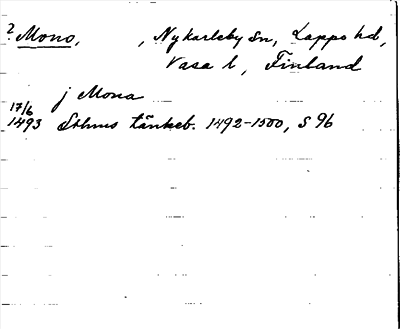 ? Mono, , Nykarleby Sn, Lappo hd,
Vasa l, Finland
j Mona
17/6
1493 Sthms tänkeb. 1492-1500, S 96